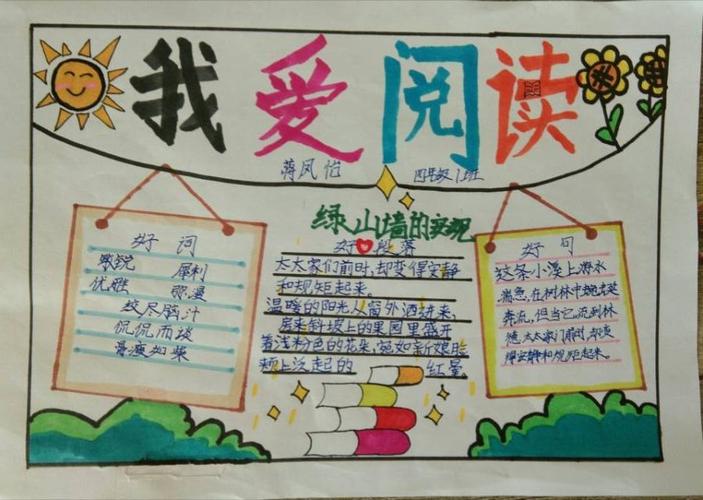 我爱阅读
蒋凤怡 四年级1班
好词
敏锐 犀利
优雅 弥漫
绞尽脑汁
侃侃而谈
骨瘦如柴
绿山墙的安妮
好段落
太太家们前时,却变得安静
和规矩起来。
温暖的阳光从窗外洒进来,
房来斜坡上的果园里盛开
着浅粉色的花朵,宛如新娘脸
颊上泛起的 红晕。
好句
这条小溪上游水
湍急,在树林中蜿蜒
奔流,但当它流到林
德太太家门前时,却变
得安静和规矩起来。